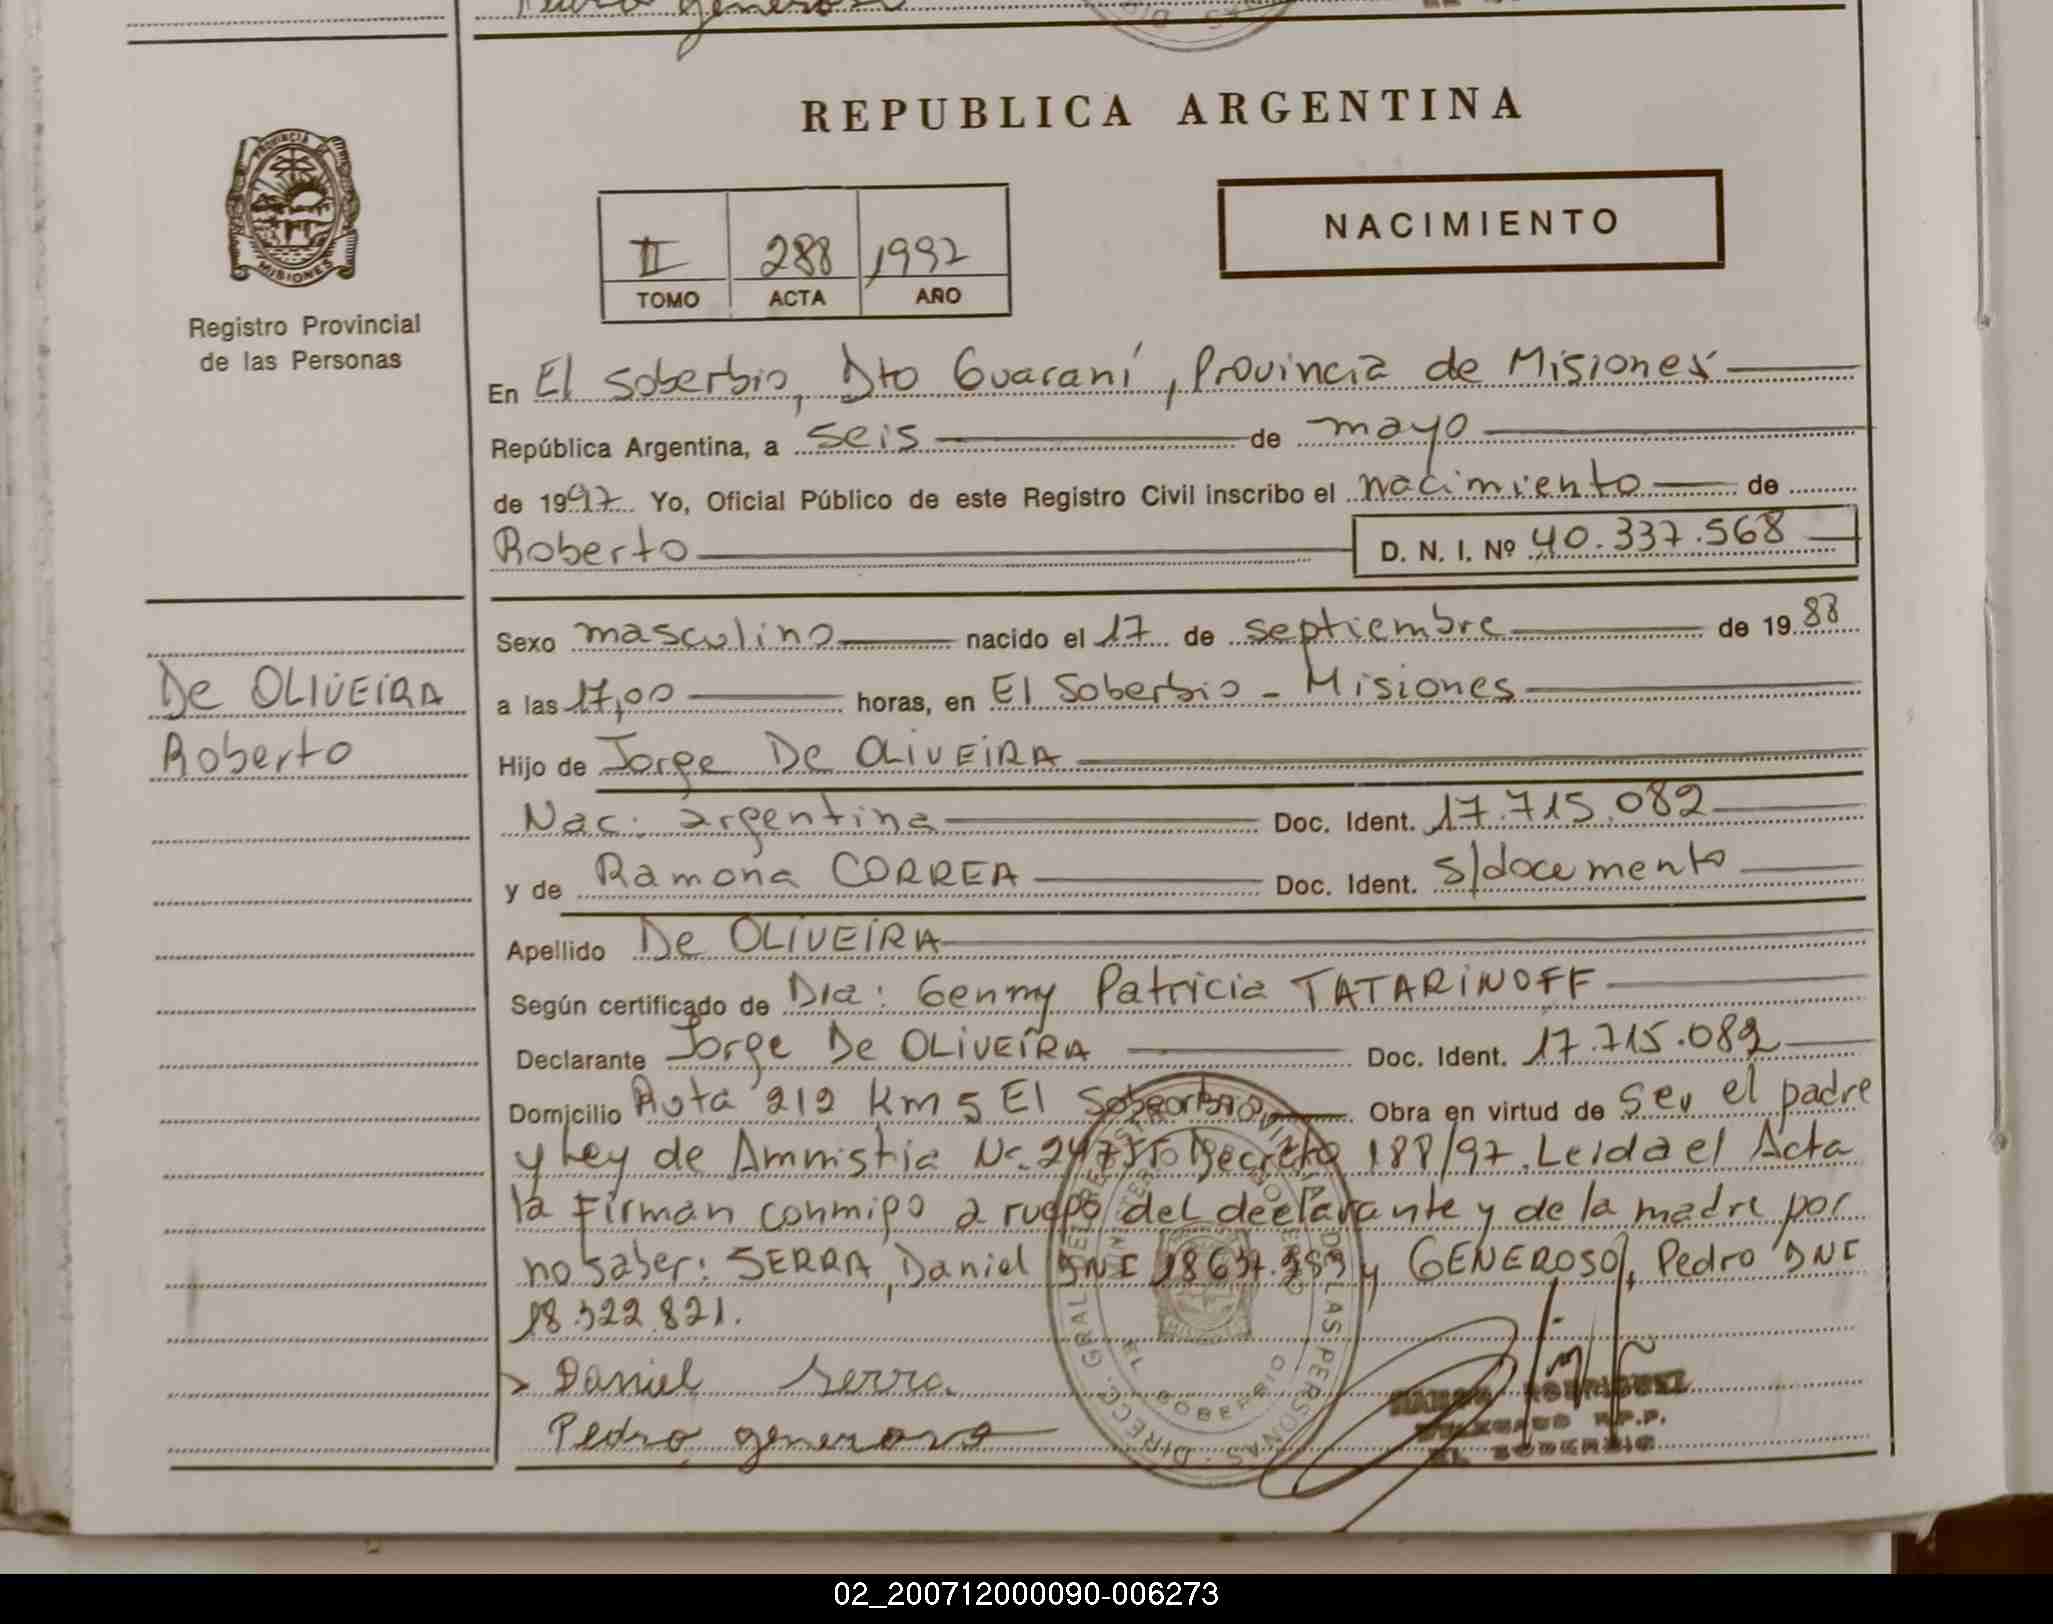 REPUBLICA ARGENTINA
PROVINCIA DE
MISIONES
NACIMIENTO
II 288 1997
TOMO ACTA AÑO
Registro Provincial
de las Personas
En El Soberbio, Dto Guaraní, Provincia de Misiones
República Argentina, a seis de mayo
de 1997 Yo, Oficial Público de este Registro Civil inscribo el nacimiento de
Roberto D. N. I. Nº 40.337.568
Sexo masculino nacido el 17 de septiembre de 1988
De OLIVEIRA
a las 17,00 horas, en El Soberbio - Misiones
Roberto
Hijo de Jorge De OLIVEIRA
Nac: argentina Doc. Ident. 17.715.082
y de Ramona CORREA Doc. Ident. s/documento
Apellido De OLIVEIRA
Según certificado de Dra: Genny Patricia TATARINOFF
Declarante Jorge De OLIVEIRA Doc. Ident. 17.715.082
Domicilio Ruta 212 Km 5 El Soberbio Obra en virtud de Ser el padre
y Ley de Amnistia Decreto 188/97. Leida el Acta
la Firman conmigo a ruego del declarante y de la madre por
no saber: SERRA, Daniel DNI y GENEROSO, Pedro DNI
18.322.821.
Daniel Serra
Pedro generoso
RAMON RODRIGUEZ
DELEGADO R.P.P.
EL SOBERBIO
DIRECC. GRAL. DEL REGISTRO PROVINCIAL DE LAS PERSONAS
EL SOBERBIO
02_200712000090-006273